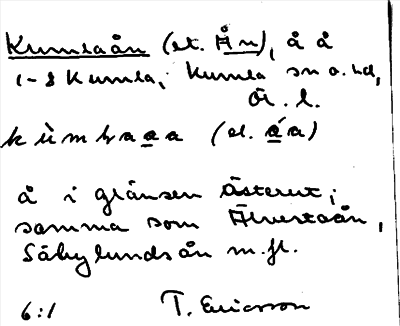 Kumlaån (el. Ån), å å
1-8 Kumla, Kumla sn o. hd,
Ör. l.
kùmlaaa (el. áa)
å i gränsen österut;
samma som Älvestaån,
Säbylundsån m.fl.
6:1 T. Ericsson